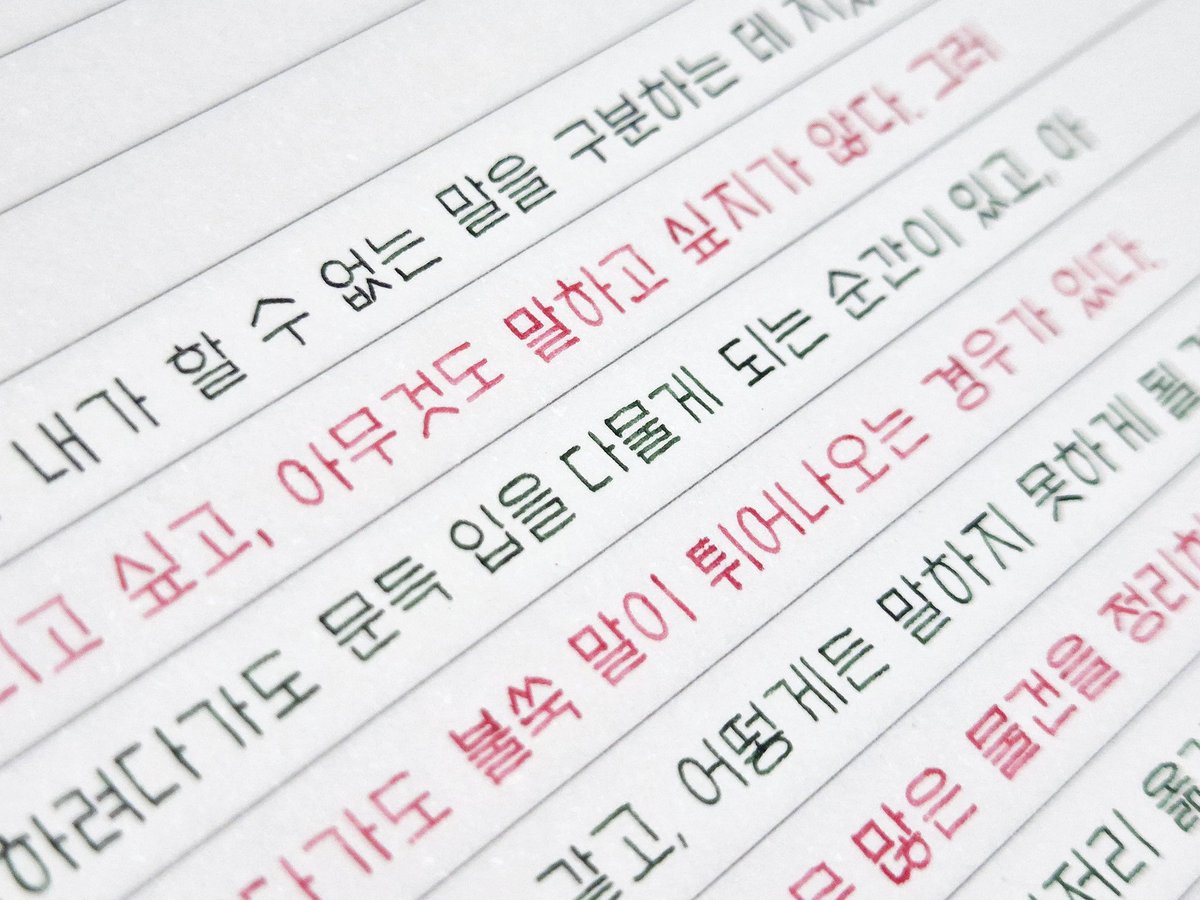 내가 할 수 없는 말을 구분하는 데
싶고, 아무것도 말하고 싶지가 않다. 그래
하려다가도 문득 입을 다물게 되는 순간이 있고, 아
다가도 불쑥 말이 튀어나오는 경우가 있다.
같고, 어떻게든 말하지 못하게 될
많은 물건을